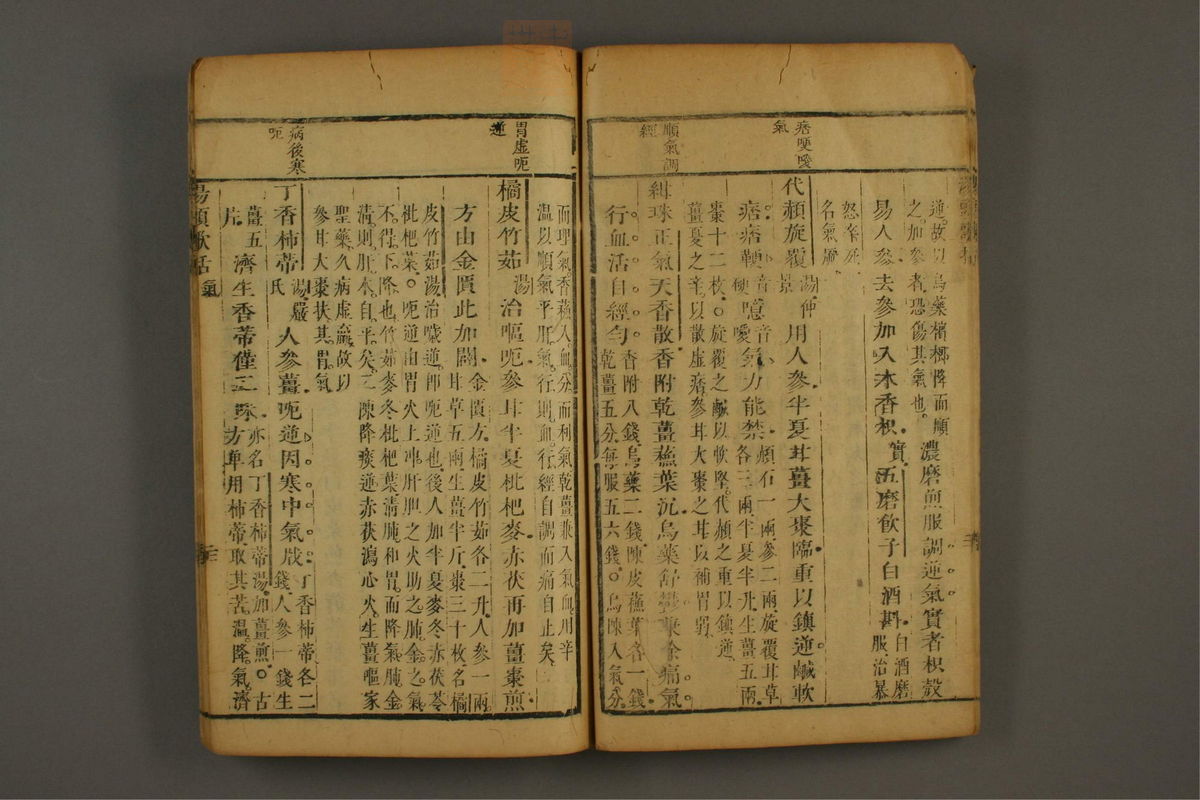 痞哽噯
氣
順氣調
經
逆。故以烏藥檳榔降而順
之加參者恐傷其氣也。
濃磨煎服調逆氣實者枳殼
易人參去參加入木香枳實五磨飲子白酒斟
白酒磨
服治暴
怒卒死
名氣厥
代赭旋覆湯仲景用人參半夏甘薑大棗臨重以鎮逆鹹軟
痞痞鞕音硬噫音噯氣力能禁
赭石一兩參二兩旋覆甘草
各三兩半夏半升生薑五兩
棗十二枚。○旋覆之鹹以軟堅。代赭之重以鎮逆
薑夏之辛以散虛痞參甘大棗之甘以補胃弱
紺珠正氣天香散香附乾薑蘓葉沉烏藥舒鬱兼除痛氣
行血活自經勻
香附八錢烏藥二錢陳皮蘓葉各一錢
乾薑五分每服五六錢○烏陳入氣分
胃虛呃
逆
病後寒
呃
而理氣香蘓入血分而利氣乾薑兼入氣血用辛
溫以順氣平肝氣行則血行經自調而痛自止矣
橘皮竹茹湯治嘔呃參甘半夏枇杷麥赤茯再加薑棗煎
方由金匱此加闢
金匱方。橘皮竹茹各二升人參一兩
甘草五兩生薑半斤。棗三十枚名橘
皮竹茹湯治噦逆即呃逆也後人加半夏麥冬赤茯苓
枇杷葉。○呃逆由胃火上冲肝胆之火助之肺金之氣
不得下降也竹茹麥冬枇杷葉清肺和胃而降氣肺金
清則肝木自平矣二陳降痰逆赤茯瀉心火生薑嘔家
聖藥久病虛羸故以
參甘大棗扶其胃氣
丁香柿蒂湯嚴氏人參薑呃逆因寒中氣戕
丁香柿蒂各二
錢人參一錢生
薑五
片
濟生香蒂僅二味
亦名丁香柿蒂湯加薑煎○古
方單用柿蒂取其苦溫降氣濟
湯頭歌括 氣